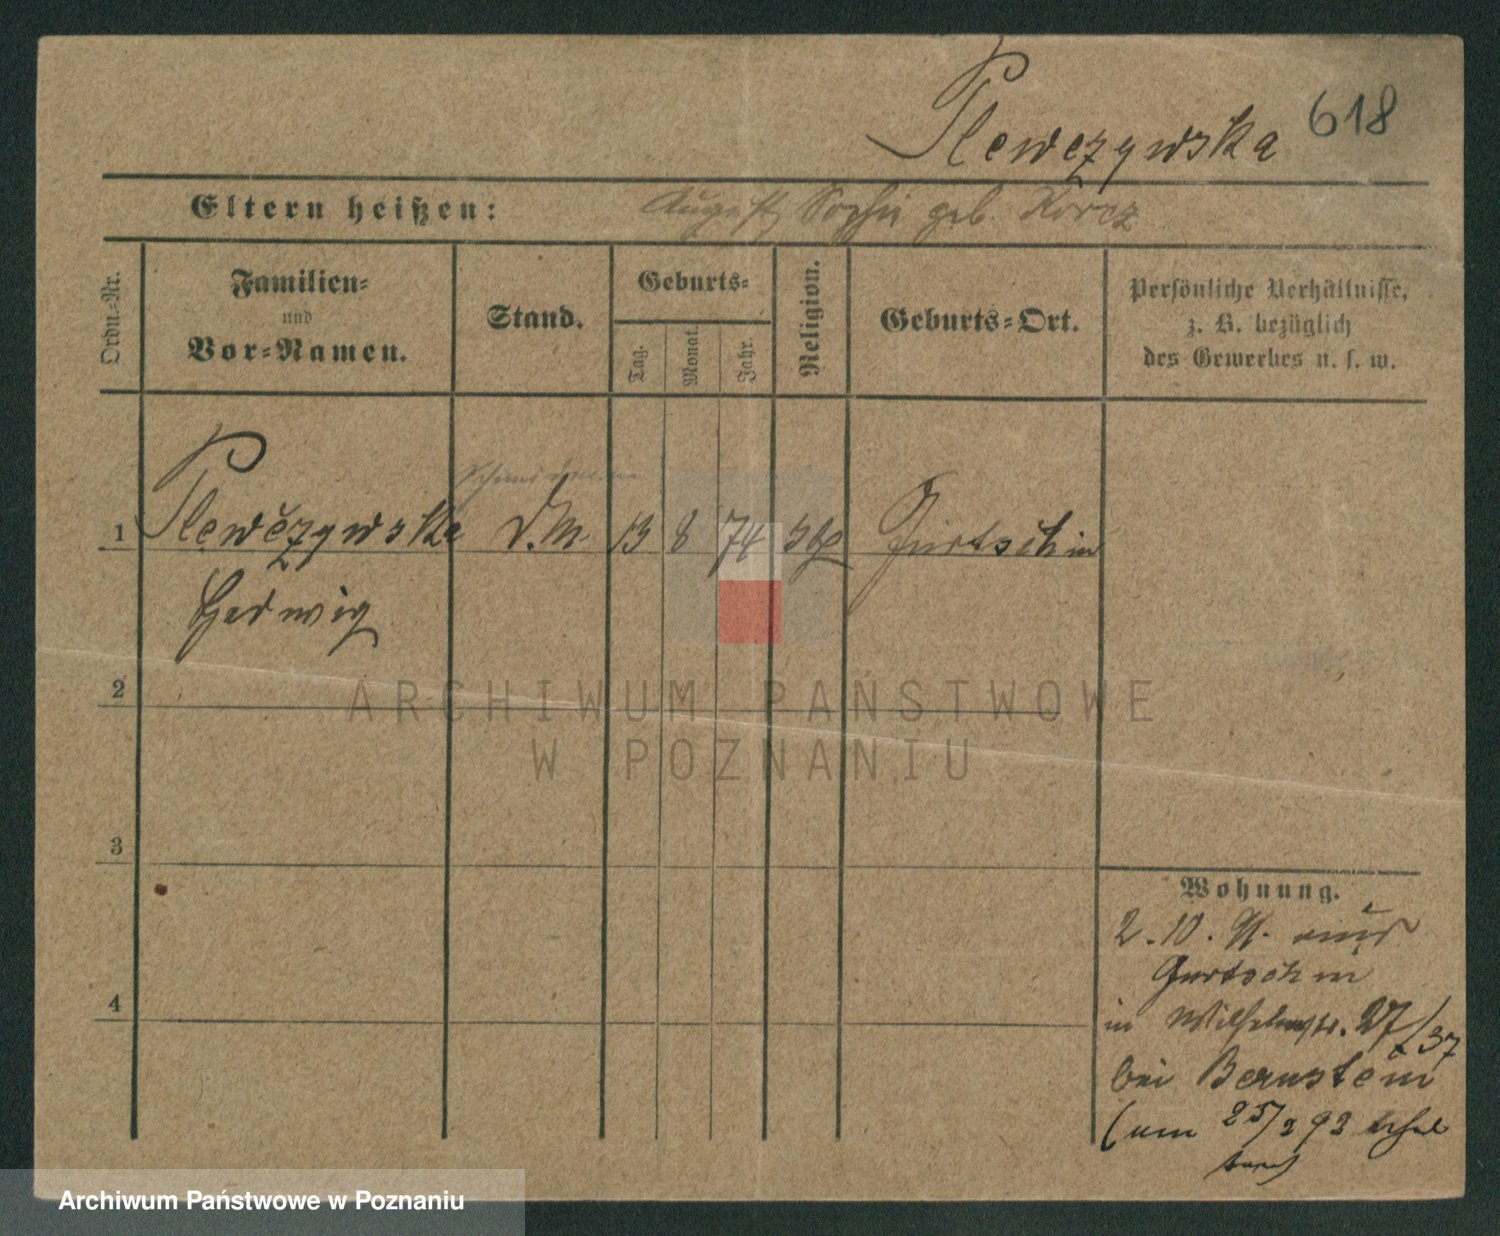 Plewczywska 618
Eltern heißen: August, Sophie geb. Korcz
Ordn.-Nr.
Familien-
und
Vor-Namen.
Stand.
Geburts-
Tag.
Monat.
Jahr.
Religion.
Geburts-Ort.
Persönliche Verhältnisse,
z. B. bezüglich
des Gewerbes u. s. w.
1 Plewczywska D.M. 13 8 74 kath
Hedwig
2
ARCHIWUM PAŃSTWOWE
W POZNANIU
3
Wohnung.
2.10. 91. aus
Gurtschin
4
in Wilhelmstr. 27/37
bei Bernstein
(am 25/2 92
Archiwum Państwowe w Poznaniu